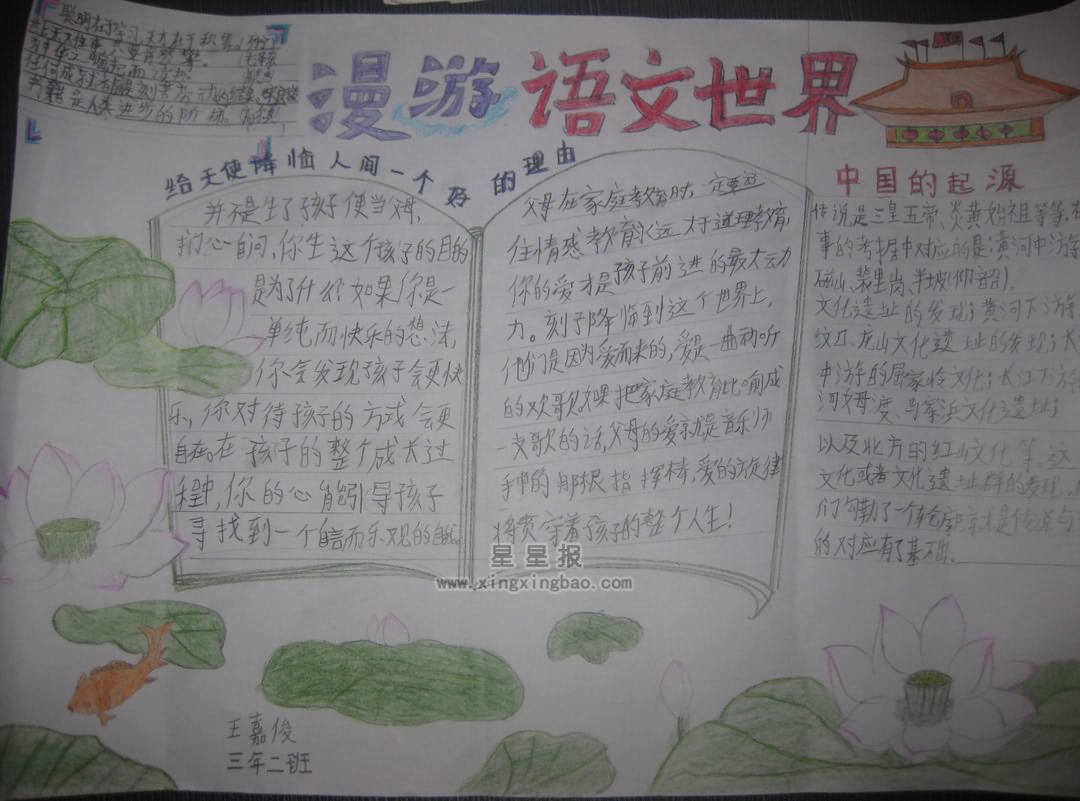 聪明在于学习,天才在于积累。
书籍是人类进步的阶梯。
漫游语文世界
给天使降临人间一个好的理由
并不是生了孩子便当父母,
扪心自问,你生这个孩子的目的
是为了什么?如果你是一
单纯而快乐的想法,
你会发现孩子会更快
乐,你对待孩子的方式会更
自在。在孩子的整个成长过
程中,你的心能引导孩子
寻找到一个自信而乐观的自我。
父母在家庭教育时,一定要记
住情感教育永远大于道理教育,
你的爱才是孩子前进的最大动
力。孩子降临到这个世界上,
他们是因为爱而来的,爱是一曲动听
的欢歌,如果把家庭教育比喻成
一支歌的话,父母的爱就是音乐师
手中的那根指挥棒,爱的旋律
将贯穿着孩子的整个人生!
中国的起源
传说是三皇五帝、炎黄始祖等等,在
事的考据中对应的是:黄河中游
磁山、裴里岗、半坡(仰韶)。
文化遗址的发现;黄河下游
汶口、龙山文化遗址的发现;长
中游的屈家岭文化;长江下游
河姆渡、马家浜文化遗址;
以及北方的红山文化等。这
文化或者文化遗址群的发现,
们勾勒了一个轮廓
的对应有了基础。
星星报
www.xingxingbao.com
王嘉俊
三年二班